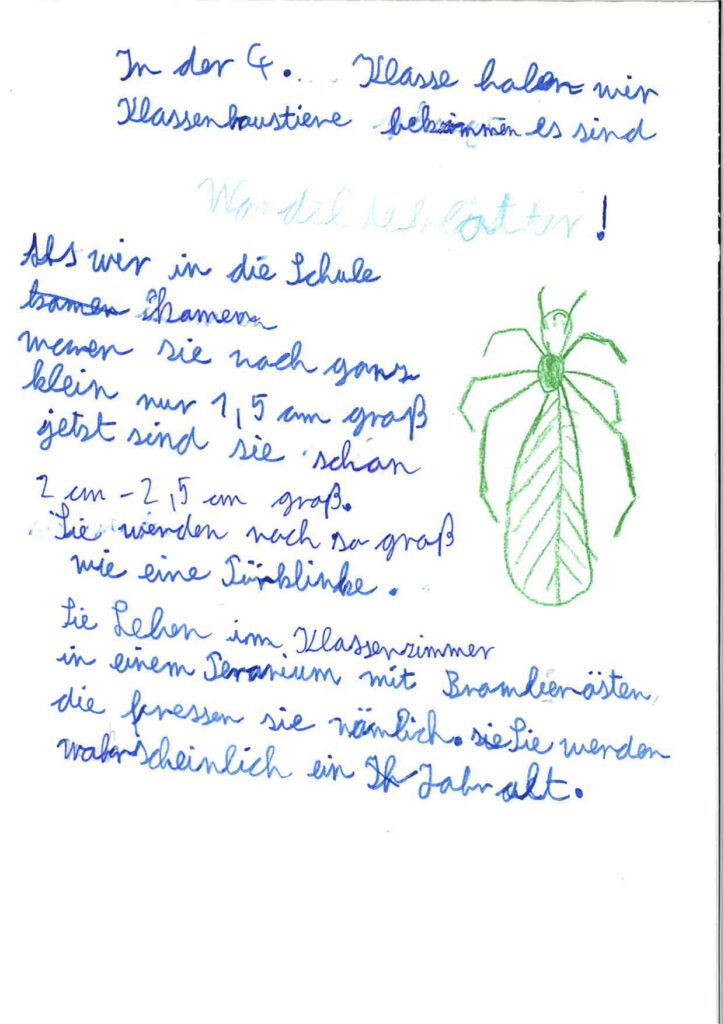 In der 4. ... Klasse haben wir
Klassenhaustiere bekommen es sind
Wandelnde Blätter!
Als wir in die Schule
kamen kamen
waren sie noch ganz
klein nur 1,5 cm groß
jetzt sind sie schon
2 cm - 2,5 cm groß.
Sie werden noch so groß
wie eine Türklinke.
Sie Leben im Klassenzimmer
in einem Terarium mit Brombierästen,
die fressen sie nämlich. sie Sie werden
wahrscheinlich ein Jahr alt.